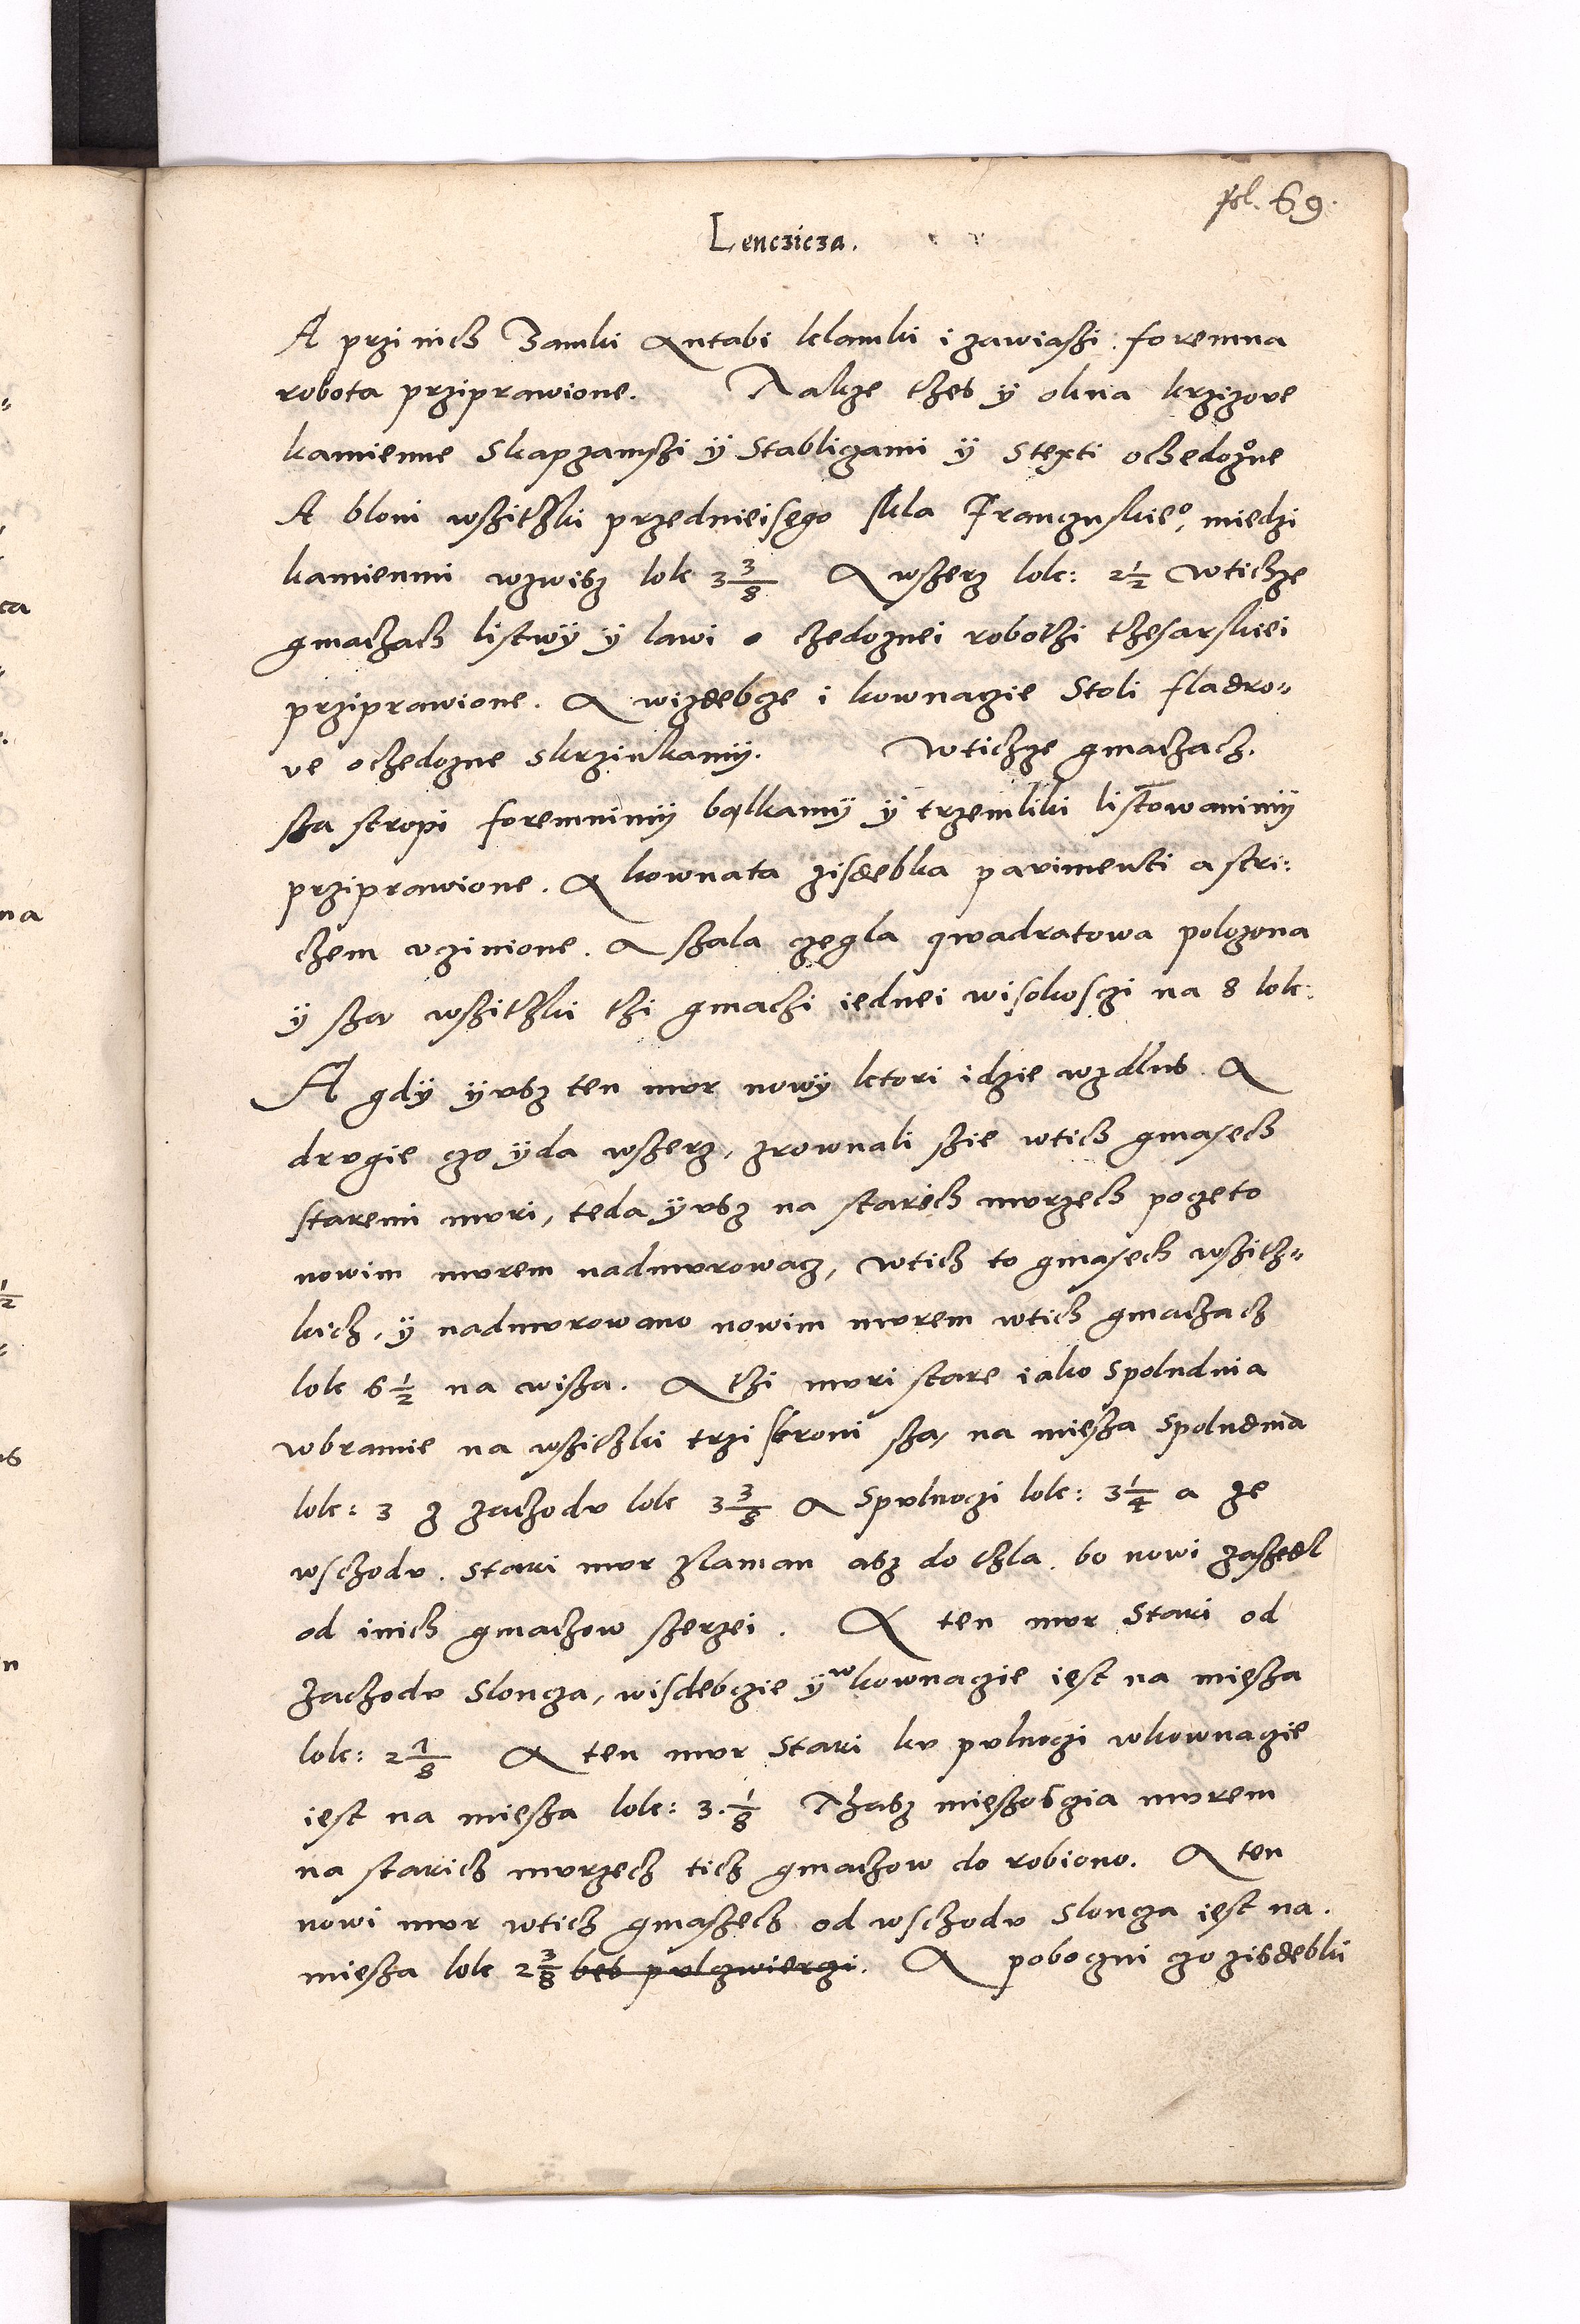 fol. 69.
Lenczicza.
A przi nich Zamki Antabi klamki i zawiaszi foremna
robota prziprawione. Takze thes y okna krzizove
kamienne Skapzamszi ÿ Stabliczami ÿ Stexti ochedozne
A bloni wszithki przednieisego skla Franczuskieo, miedzi
kamienmi wzwisz lok 3 3/8 A wszerz lok: 2 1/2 Wtichze
gmachach listwÿ ÿ lawi o chedoznei robothi thesarskiei
prziprawione. A wizdebze i kownazie Stoli fladro-
ve ochedozne skrzinkamÿ. Wtichze gmachach.
sza stropi foremnimÿ balkamÿ ÿ trzemliki listowanimÿ
prziprawione. A kownata zisdebka pavimenti astri:
chem vczinione. A szala czegla qwadratowa polozona
ÿ sza wszithki thi gmachi iednei wisokosczi na 8 lok:
A gdÿ ÿvsz ten mvr nowÿ ktori idzie wzdlus. A
drvgie czo ÿda wszerz, zrownali szie wtich gmasech
staremi mvri, teda ÿvsz na starich mvrzech poczeto
nowim mvrem nadmvrowacz, wtich to gmasech wszith-
kich, ÿ nadmvrowano nowim mvrem wtich gmachach
lok 6 1/2 na wisza. A thi mvri stare iako Spoludnia
wbramie na wszithki trzi stroni sza, na miesza Spoludnia
lok: 3 z zachodv lok 3 3/8 A Spvlnoczi lok: 3 1/4 a ze
wschodv. Stari mvr zlaman asz do thla. bo nowi zaszedl
od inich gmachow szerzei. A ten mvr Stari od
zachodv Sloncza, wisdebczie ÿ w kownaczie iest na miesza
lok: 2 7/8 A ten mvr Stari kv pvlnoczi wkownaczie
iest na miesza lok: 3. 1/8 Thasz mieszosczia mvrem
na starich mvrzech tich gmachow do robiono. A ten
nowi mvr wtich gmaszech od wschodv Sloncza iest na.
miesza lok 2 3/8 bes pvlczwierczi. A poboczni czo zisdebki